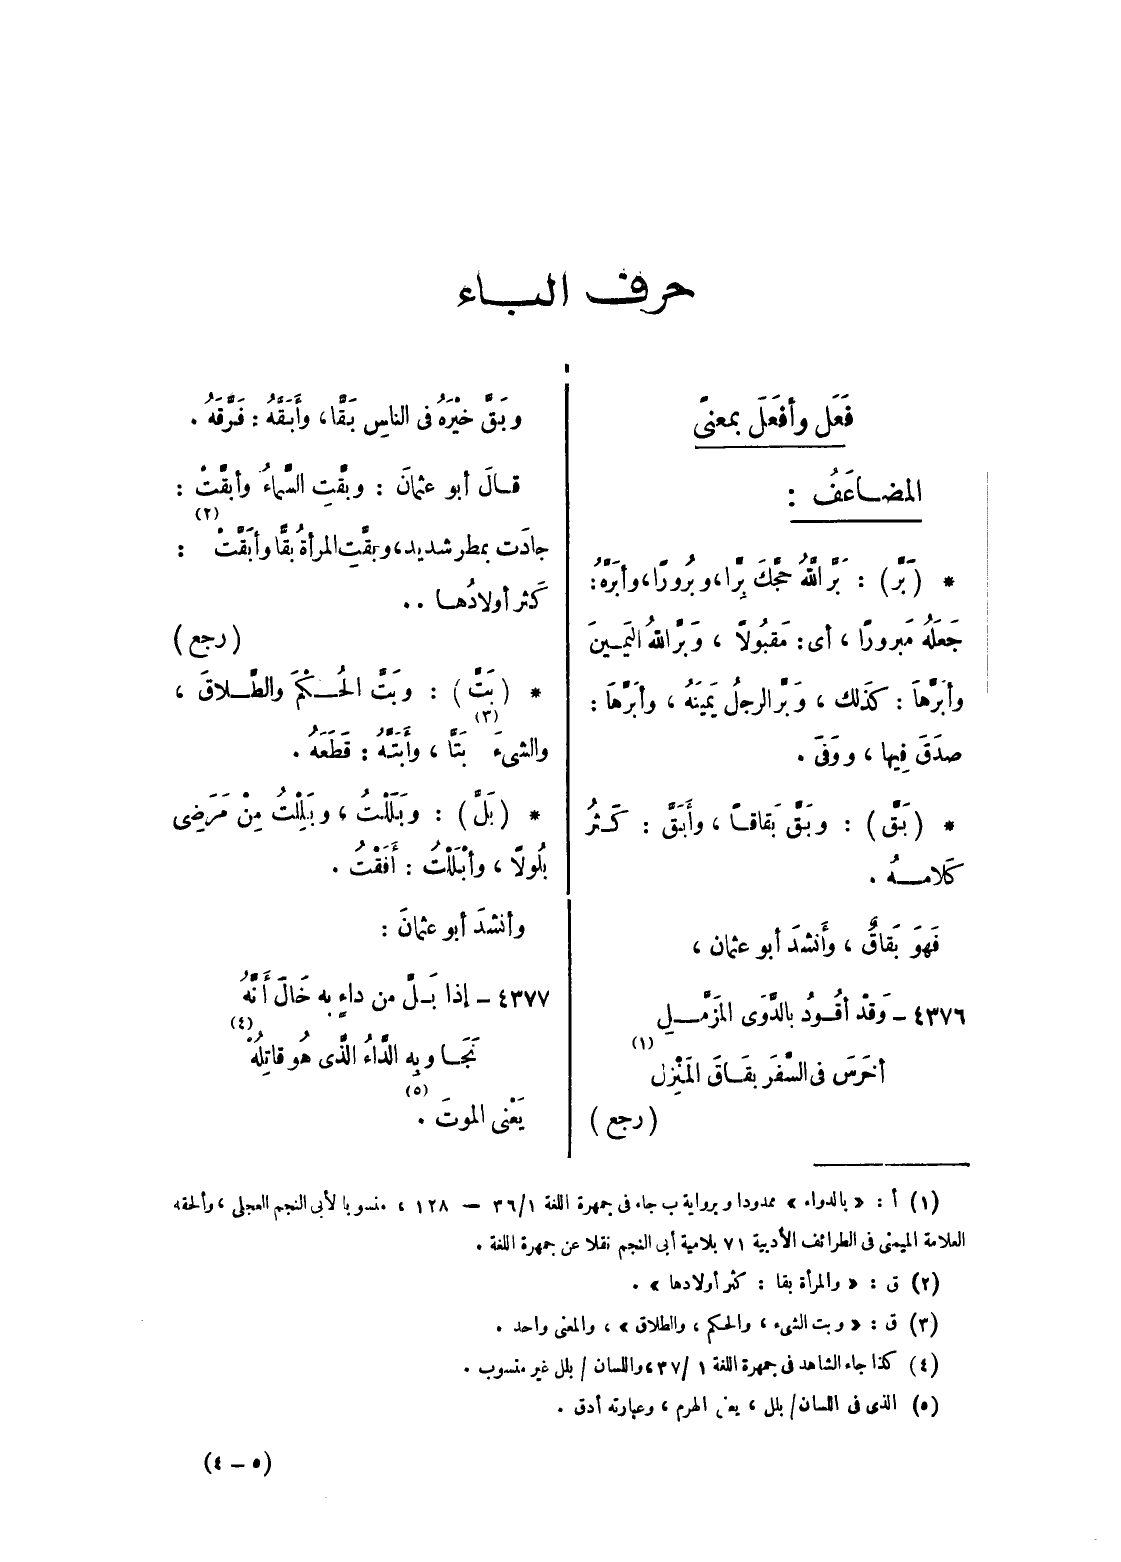 حرف البــاء
فَعَل وأفعَلَ بمعنىً
المضـاعَفُ :
* ( بَرَّ ) : بَرَّ اللهُ حجَّكَ بِرًّا، وبُرورًا، وأبَرَّهُ:
جَعَلَهُ مَبرورًا ، أى: مَقبُولاً ، وَبَرَّ اللهُ اليَمـينَ
وأبَرَّهاَ : كذَلك ، وَبَرَّ الرجلُ يَمينَهُ ، وأبَرَّهاَ :
صدَقَ فِيها ، ووَفىَ .
* ( بَقَّ ) : وبَقَّ بَقاقـاً ، وأَبَقَّ : كَـثرُ
كَلامـــهُ .
فَهوَ بَقاقٌ ، وأَنشدَ أبو عثمان ،
٤٣٧٦ ـ وَقدْ أقُـودُ بالدَّوَى المَزمَّــلِ
أخرَسَ فى السَّفرَ بقَـاقَ المَنْزِل (١)
( رجع )
وبَقَّ خيْرَهُ فى الناسِ بَقَّا، وأَبَقَّهُ : فَرَّقهُ .
قـالَ أبو عثمانَ : وبقَّتِ السَّماءُ وأبقَّتْ :
جادَت بمطر شديد، وبقَّتِ المرأةُ بقًّا وأبَقَّتْ (٢) :
كَثر أولادُهـا ..
( رجع )
* ( بَتَّ ) : وبَتَّ الحُــكْمَ والطَّــلاقَ ،
والشىءَ (٣) بَتَّا ، وأَبَتَّهُ : قَطَعَهُ .
* ( بَلَّ ) : وبَلَلْتُ ، وبَلِلْتُ مِنْ مَرَضِى
بُلولاً ، وأبْلَلْتُ : أَفَقْتُ .
وأنشدَ أبو عثمانَ :
٤٣٧٧ ـ إذا بَـلَّ من داءٍ به خَالَ أَنَّهُ
نَجَـا وبِهِ الدَّاءُ الذَّى هُو قاتِلُهْ (٤)
يَعْنى الموتَ (٥) .
(١) أ : « بالدواء » ممدودا وبرواية ب جاء فى جمهرة اللغة ٣٦/١ — ١٢٨ ، منسوبا لأبى النجم العجلى ، وألحقه
العلامة الميمنى فى الطرائف الأدبية ٧١ بلامية أبى النجم نقلا عن جمهرة اللغة .
(٢) ق : « والمرأة بقا : كثر أولادها » .
(٣) ق : « وبت الشىء ، والحكم ، والطلاق » ، والمعنى واحد .
(٤) كذا جاء الشاهد فى جمهرة اللغة ١ /٣٧، واللسان / بلل غير منسوب .
(٥) الذى فى اللسان/ بلل ، يعنى الهرم ، وعبارته أدق .
(٥ – ٤)